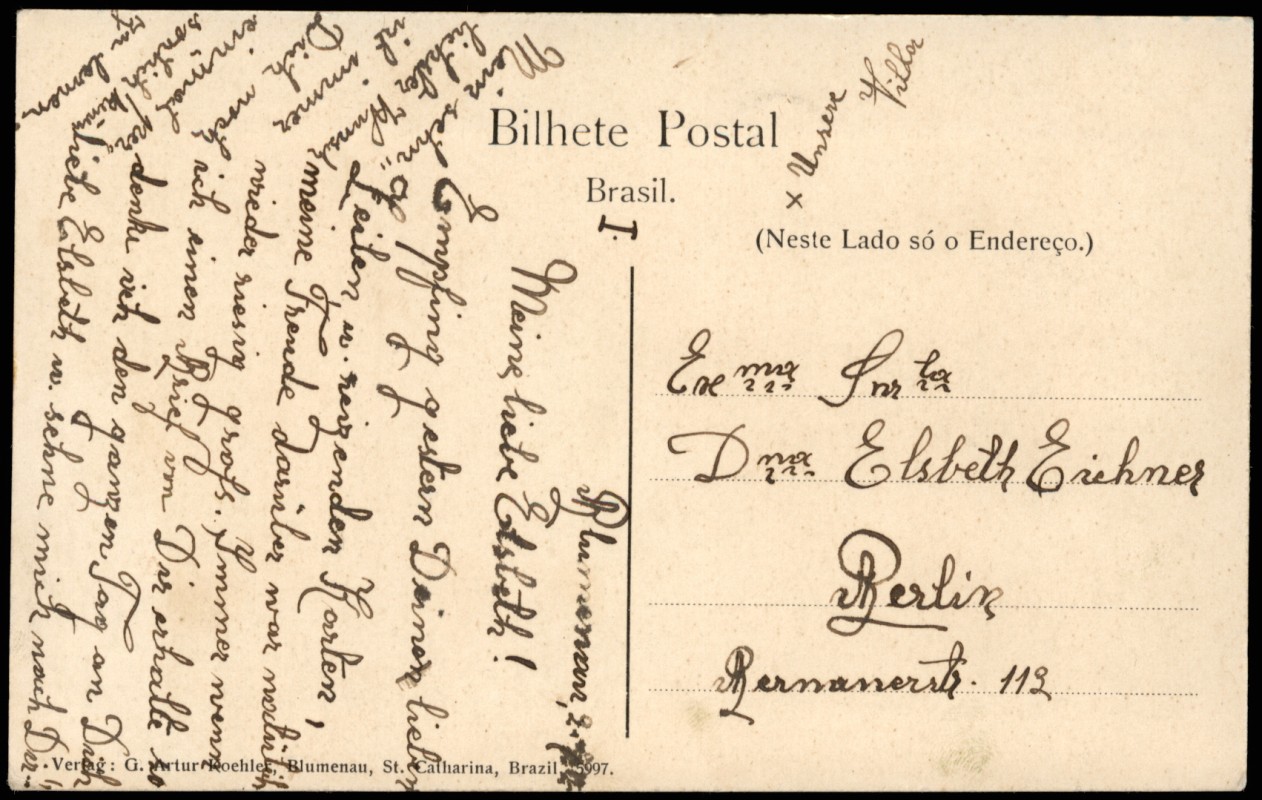 Bilhete Postal
Brasil.
(Neste Lado só o Endereço.)
I.
x Unsere
Villa
Exma Snrta
Dna Elsbeth Eichner
Berlin
Bernauerstr. 112
Blumenau, 2.
Meine liebe Elsbeth!
Empfing gestern Deinen lieben
Zeilen u. reizenden Karten,
meine Freude darüber war natürlich
wieder riesig groß. Immer wenn
ich einen Brief von Dir erhalte so
denke ich den ganzen Tag an Dich
liebe Elsbeth u. sehne mich nach Dir.
Mein
immer
Dich
noch
einmal
zu lernen.
Verlag: G. Artur Koehler, Blumenau, St. Catharina, Brazil. 5997.